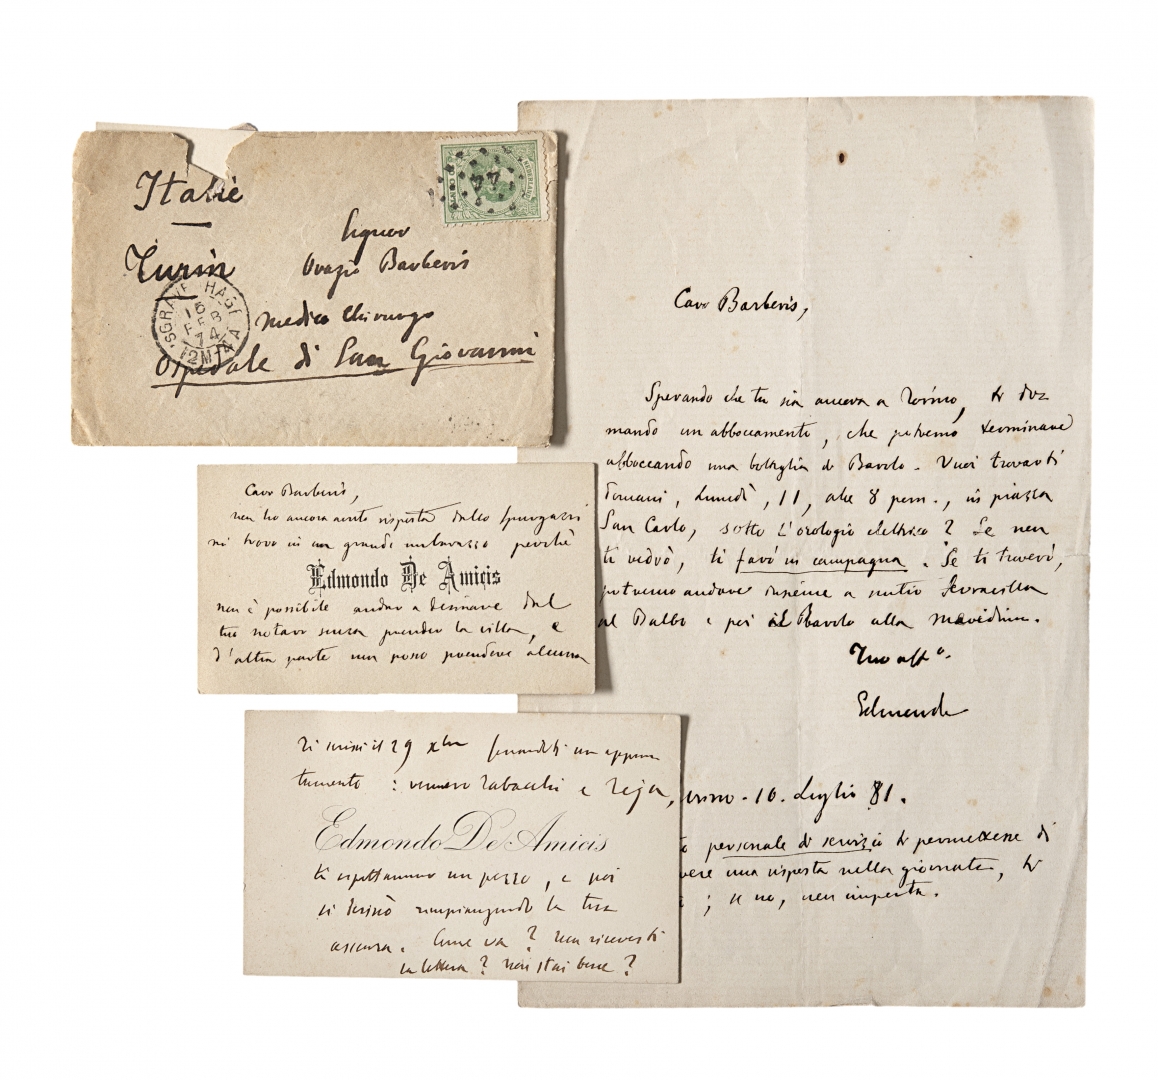 Italië
Turin
Signor
Orazio Barberis
Medico Chirurgo
Ospedale di San Giovanni
NEDERLAND
20 CENT
44
'SGRAVENHAGE
15
FEB
74
12M-4A
Caro Barberis,
non ho ancora avuto risposta dallo
mi trovo in un grande imbarazzo perchè
Edmondo De Amicis
non è possibile andar a desinare dal
tuo notaro senza prender la villa, e
d'altra parte non posso prendere alcuna
Ti scrissi il 29 Xbre fissandoti un appun
tamento: vennero Tabacchi e
Edmondo De Amicis
ti aspettammo un pezzo, e poi
si desinò rimpiangendo la tua
assenza. Come va? Non ricevesti
la lettera? Non stai bene?
Caro Barberis,
Sperando che tu sia ancora a Torino, ti do
mando un abboccamento, che potremo terminare
abboccando una bottiglia di Barolo. Vuoi trovarti
domani, lunedì, 11, alle 8 pom., in piazza
San Carlo, sotto l'orologio elettrico? Se non
ti vedrò, ti farò in campagna. Se ti troverò,
potremo andare insieme a
al Balbo e poi il Barolo alla
Tuo affº.
Edmondo
10. Luglio 81.
personale di servizio ti permettesse di
vere una risposta nella giornata, te
; se no, non importa.